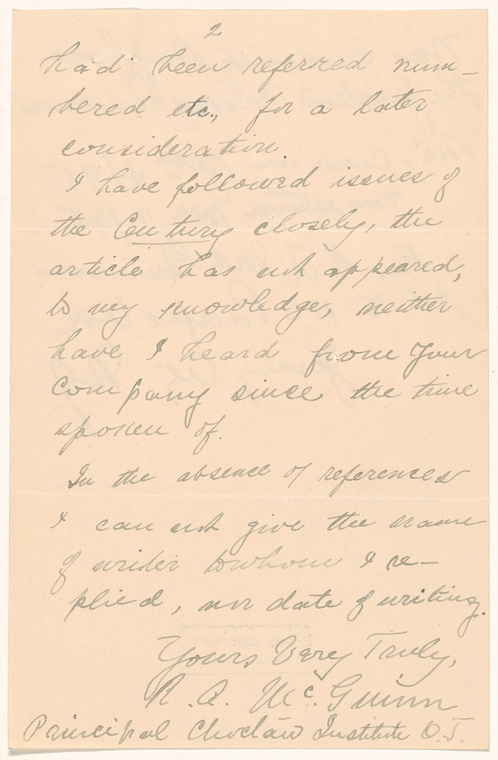 2
had been referred num-
bered etc., for a later
consideration.
I have followed issues of
the Century closely, the
article has not appeared,
to my knowledge, neither
have I heard from your
company since the time
spoken of.
In the absence of references
I can not give the name
of writer to whom I re-
plied, nor date of writing.
Yours Very Truly,
R. A. McGuinn
Principal Choctaw Institute O.T.